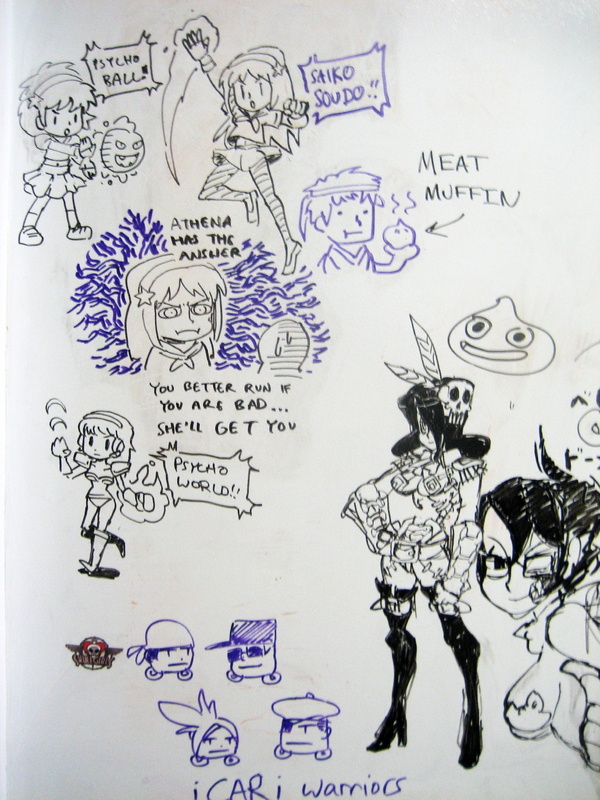 PSYCHO
BALL!!
SAIKO
SOUDO!!
MEAT
MUFFIN
ATHENA
HAS THE
ANSWER
YOU BETTER RUN IF
YOU ARE BAD...
SHE'LL GET YOU
PSYCHO
WORLD!!
iCARi warriors